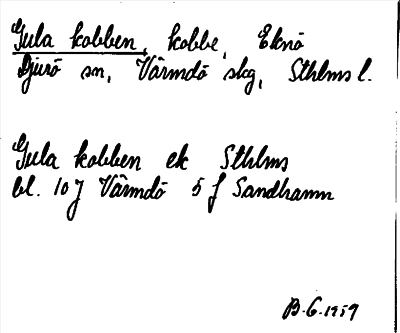 Gula kobben, kobbe, Eknö
Djurö sn, Värmdö skg, Sthlms l.
Gula kobben ek Sthlms
bl. 107 Värmdö 5 f Sandhamn
B.G. 1959